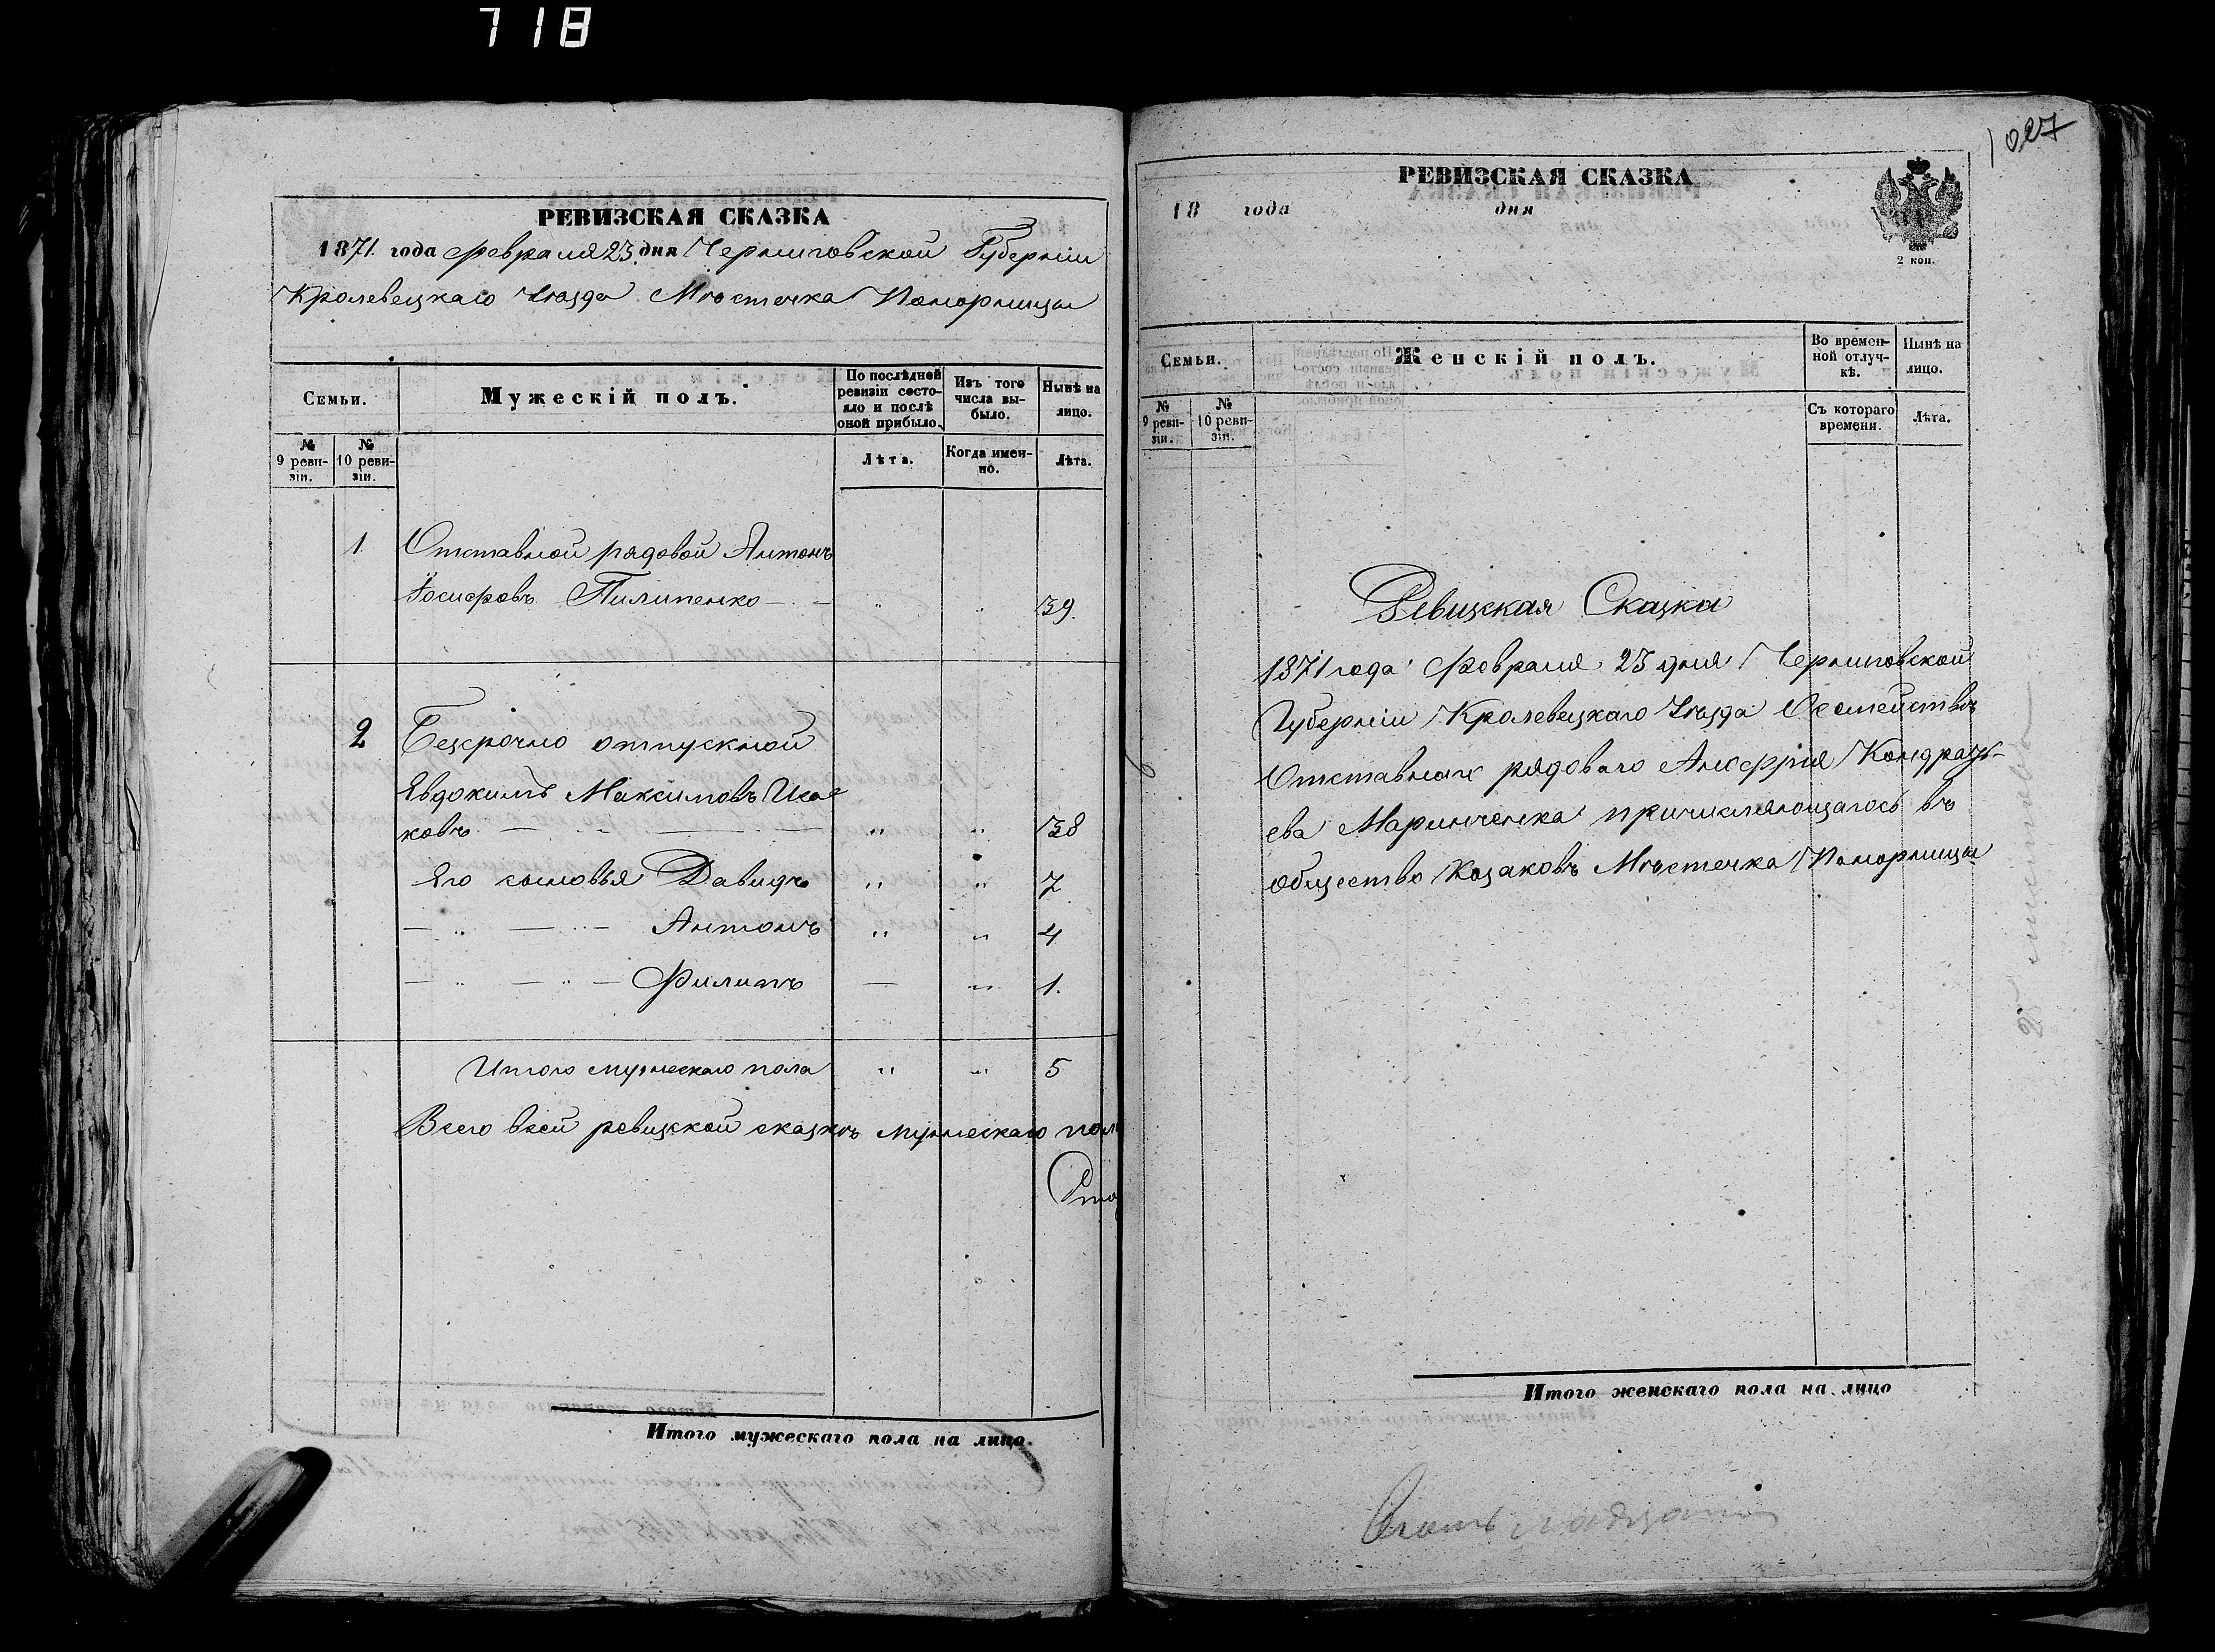 718
РЕВИЗСКАЯ СКАЗКА
1871. года Февраля 23 дня Черниговской Губерніи
Кролевецкаго Уѣзда Мѣстечка Понорницы
Семьи.
Мужескій полъ.
По послѣдней ревизіи состояло и послѣ оной прибыло.
Изъ того числа выбыло.
Нынѣ на лицо.
№ 9 ревизіи.
№ 10 ревизіи.
Лѣта.
Когда именно.
Лѣта.
1 Отставной рядовой Антонъ
Іосифовъ Пилипенко — „ „ 39.
2 Безсрочно отпускной
Евдокимъ Максимовъ
ковъ — „ „ 38
Его сыновья Давидъ „ „ 7
— „ — „ — Антонъ „ „ 4
— „ — „ — Филипъ — „ 1.
Итого мужескаго пола „ „ 5
Всего всей ревизкой сказкѣ мужескаго пол
Итого мужескаго пола на лицо.
1027
РЕВИЗСКАЯ СКАЗКА
18 года дня
2 коп.
Семьи.
Женскій полъ.
Во временной отлучкѣ.
Нынѣ на лицо.
№ 9 ревизіи.
№ 10 ревизіи.
Съ котораго времени.
Лѣта.
Ревизская Сказка
1871 года Февраля 23 дня Черниговской
Губерніи Кролевецкаго Уѣзда О семействѣ
Отставнаго рядоваго Анофрія Кондрать-
ева Маринченка причисляющагось въ
общество Козаковъ Мѣстечка Понорницы
Итого женскаго пола на лицо